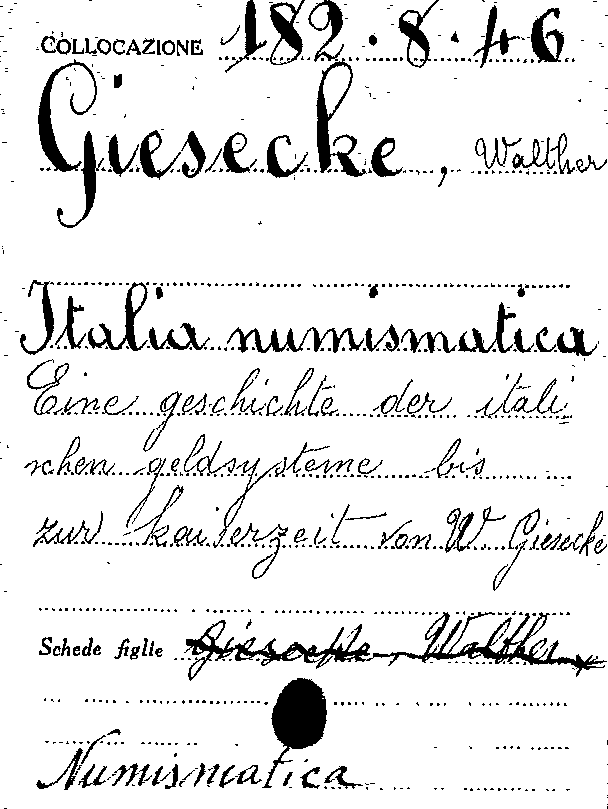 COLLOCAZIONE 182.8.46
Giesecke, Walther
Italia numismatica
Eine geschichte der itali=
schen geldsysteme bis
zur kaiserzeit von W. Giesecke
Schede figlie Giesecke, Walther
Numismatica